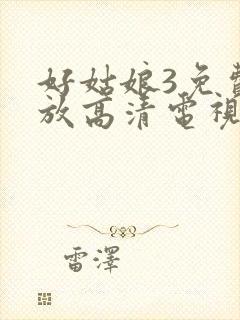 好姑娘3免費
放高清電視
雷澤